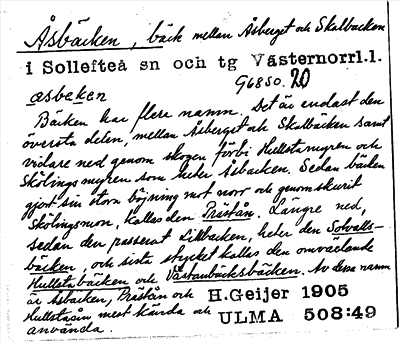 Åsbäcken, bäck mellan Åsberget och Skalbacken
i Sollefteå sn och tg Västernorrl.l.
G6850. 20
æsbeken
Bäcken har flere namn. Det är endast den
översta delen, mellan Åsberget och Skalbäcken samt
vidare ned genom skogen förbi Hullstamyren och
Skölingsmyren som heter Åsbacken. Sedan bäcken
gjort sin stora böjning mot norr och genomskurit
Skölingsmon, kallas den Prästån. Längre ned,
sedan den passerat Likbacken, heter den Solvalls-
bäcken, och sista stycket kallas den omväxlande
Hullstabäcken och Västanbäcksbäcken. Av dessa namn
är Åsbäcken, Prästån och
Hullstaån mest kända och
använda.
H.Geijer 1905
ULMA 508:49